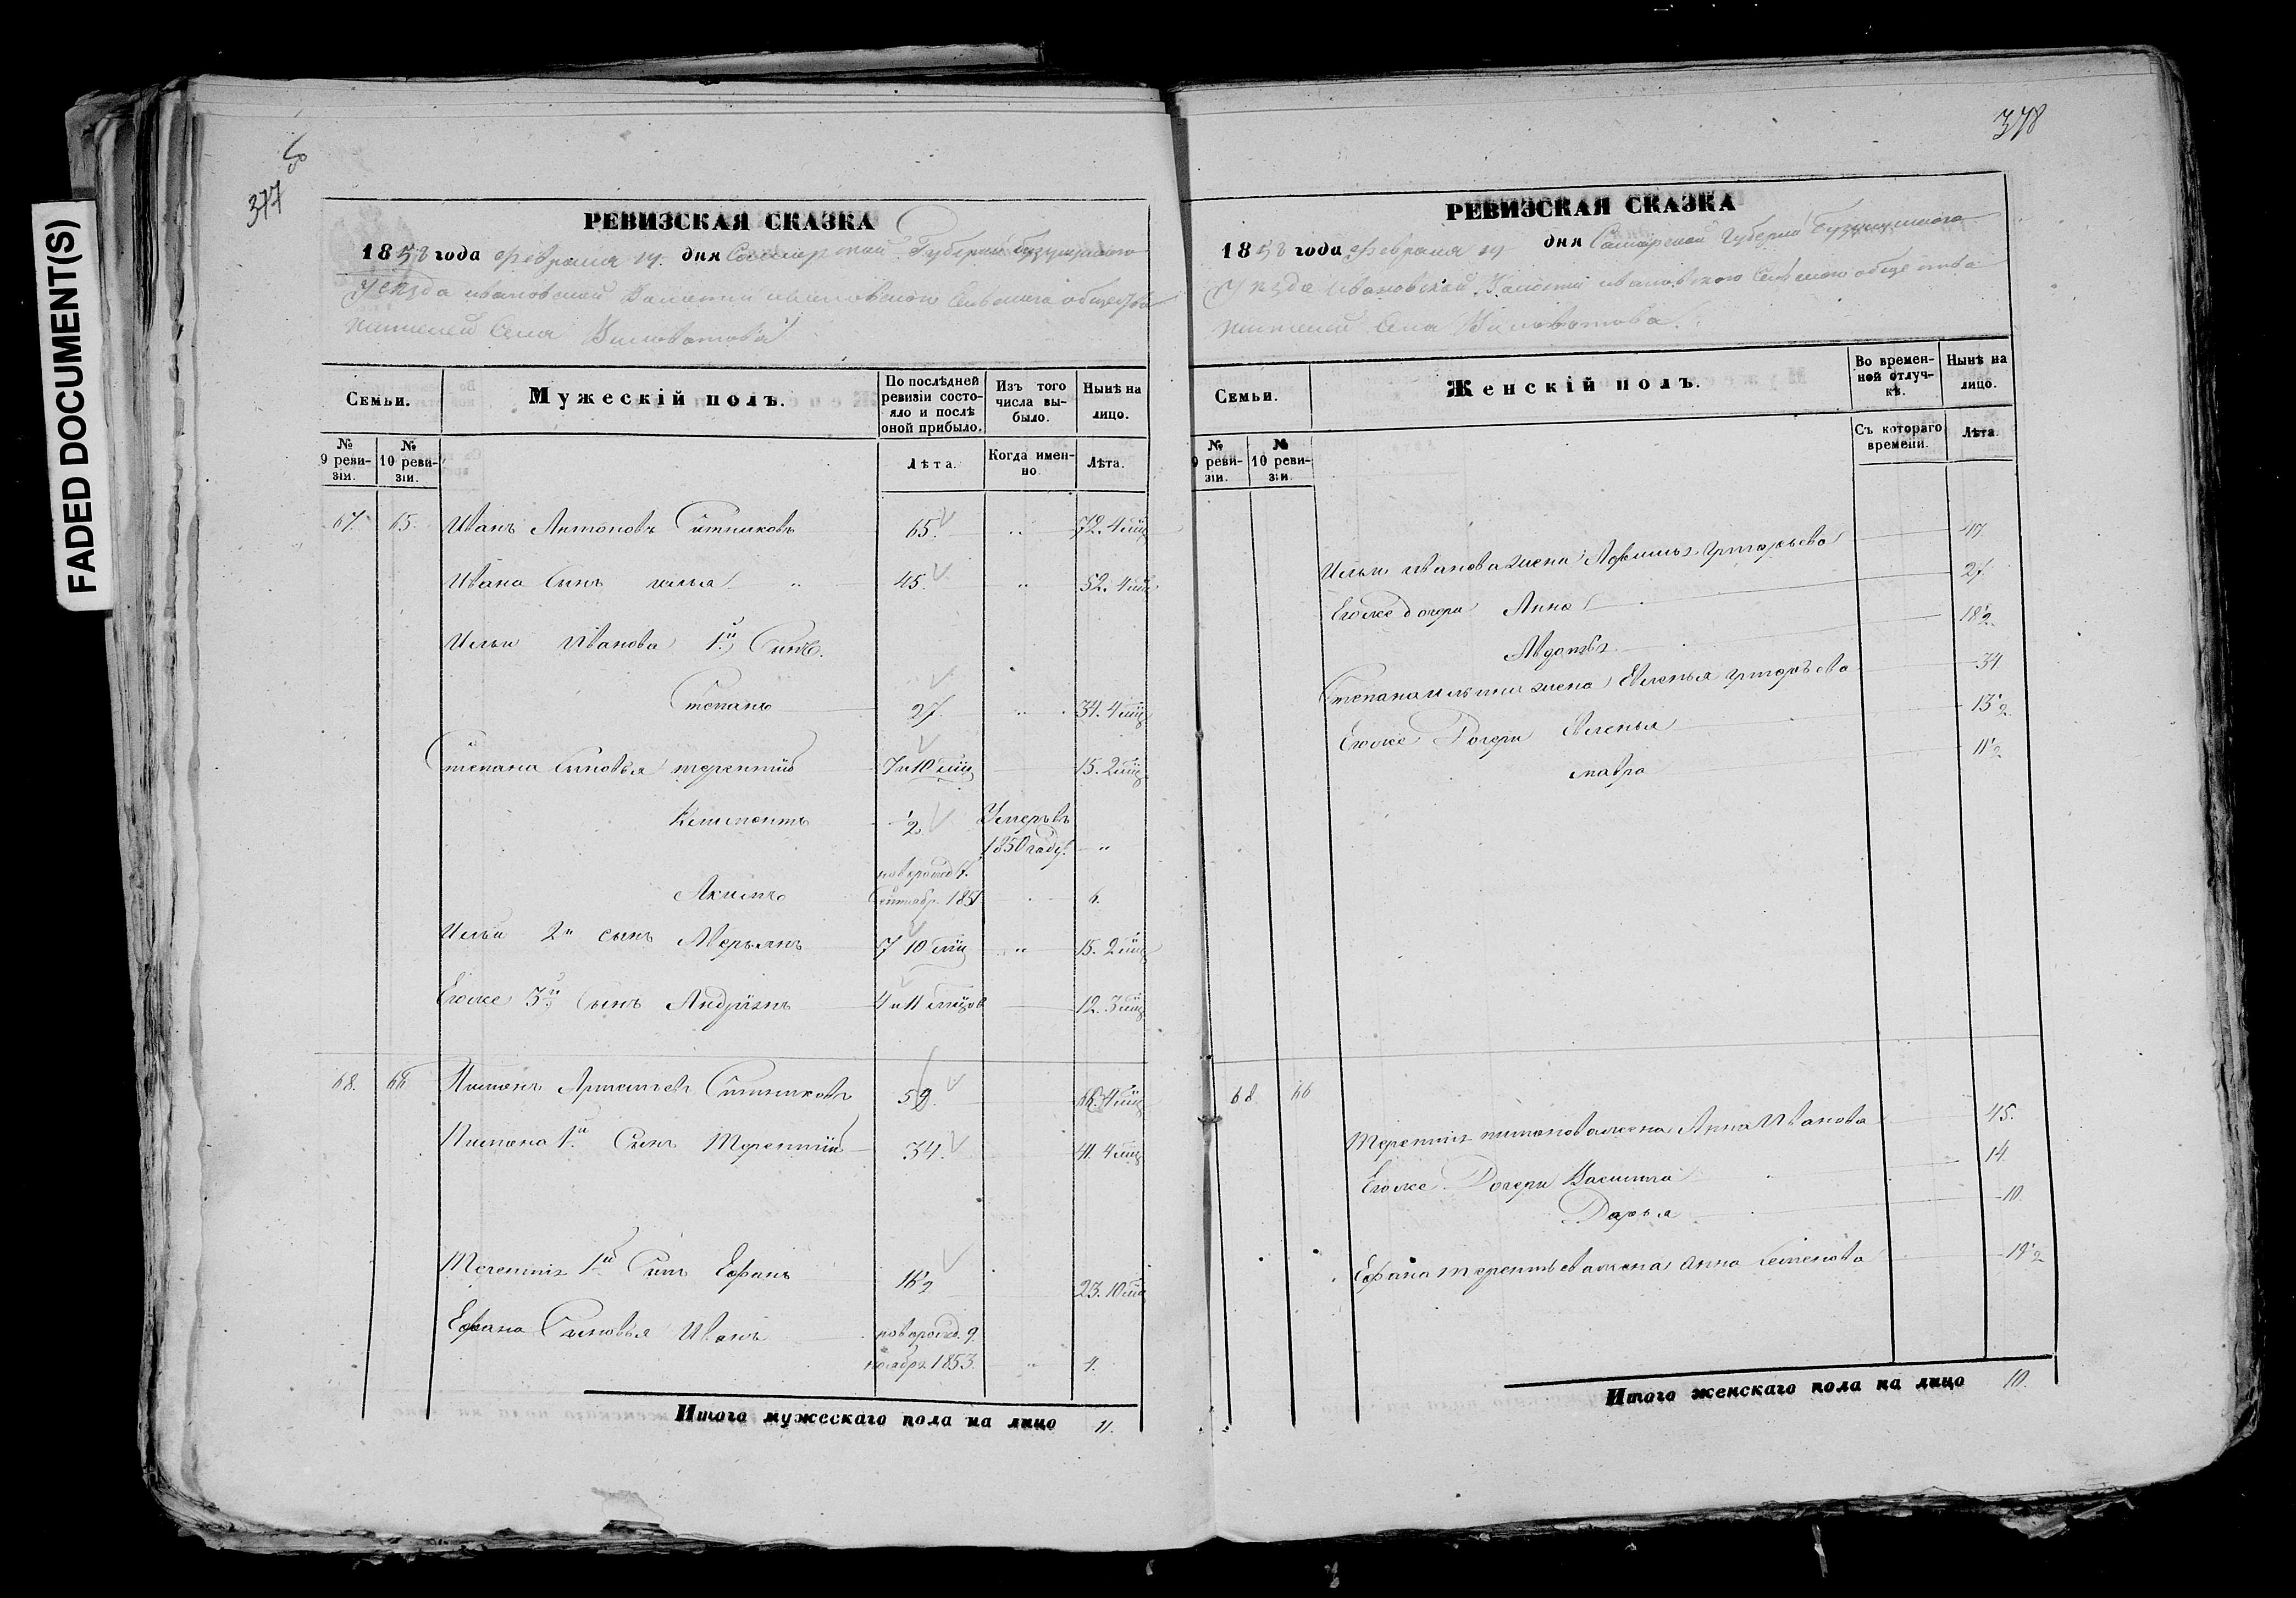 FADED DOCUMENT(S)
377
РЕВИЗСКАЯ СКАЗКА
1858 года февраля 14 дня Самарской Губерніи Бузулукского
Уезда ивановской Волости ивановского Сельского общества
жителей Села
Семьи.
Мужескій полъ.
По послѣдней ревизіи состояло и послѣ оной прибыло.
Изъ того числа выбыло.
Нынѣ на лицо.
№ 9 ревизіи.
№ 10 ревизіи.
Лѣта.
Когда именно
Лѣта.
67. 65. Иванъ Антоновъ Ситниковъ 65. " 72. 4 мѣц
Ивана Сынъ илья " 45. " 52. 4 мѣц
Ильи Иванова 1й Сынъ.
Степанъ 27. " 34. 4 мѣц
Степана Сыновья терентий 7 и 10 мѣц 15. 2 мѣц
Климонтъ ½ Умеръ въ
1850 году. "
новорожд 7.
Акимъ Сентабр. 1851 " 6.
Ильи 2й сынъ 7 10 мѣц " 15. 2 мѣц
Егоже 3й Сынъ Андріянъ 4 и 11 мѣцов 12. 3 мѣц
68. 66 Пимонъ Ситниковъ 59. 66. 4 мѣц
Пимона 1й Сынъ Терентий 34. 41. 4 мѣц
1й Сынъ Ефанъ 16½ 23. 10 мѣц
Ефана Сыновья Иванъ новорожд. 9.
ноабря 1853. " 4.
Итого мужескаго пола на лицо 11.
378
РЕВИЗСКАЯ СКАЗКА
1858 года февраля 14 дня Самарской Губерніи Бузулукского
Уезда Ивановской Волости ивановского Сельского общества
жителей Села
Семьи.
Женскій полъ.
Во временной отлучкѣ.
Нынѣ на лицо.
№ 9 ревизіи.
№ 10 ревизіи
Съ котораго времени.
Лѣта.
Ильи иванова жена григорьева 47
Егоже дочери Анна 27.
Авдотья 18½
Степана ильина жена Евленья григорьева 34.
Егоже Дочери Евленья 13½
мавра 11½
68. 66
Терентия пимонова жена Анна Иванова 45.
Егоже Дочери Василиса 14.
Дарья 10.
Ефана терентьева жена анна Семенова 19½
Итого женскаго пола на лицо 10.